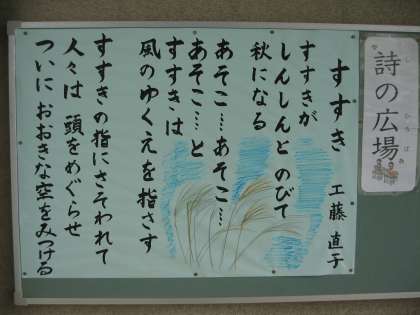 詩の広場
し
ひろば
すすき
工藤 直子
すすきが
しんしんと のびて
秋になる
あそこ…あそこ…
あそこ…と
すすきは
風のゆくえを指さす
すすきの指にさそわれて
人々は 頭をめぐらせ
ついに おおきな空をみつける